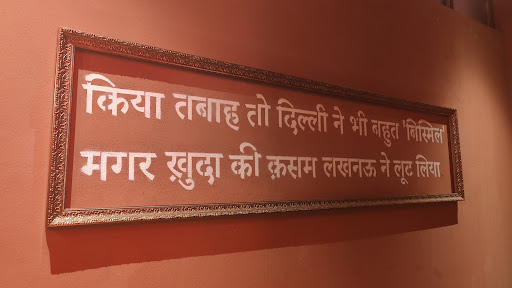 किया तबाह तो दिल्ली ने भी बहुत 'बिस्मिल'
मगर ख़ुदा की क़सम लखनऊ ने लूट लिया